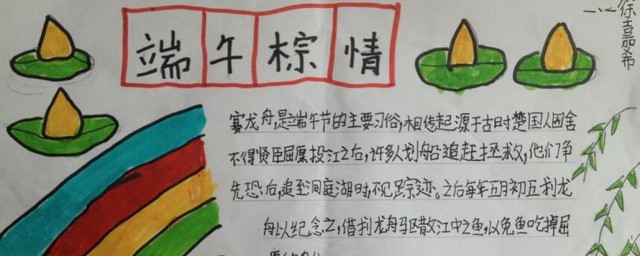 端午棕情
一心徐嘉希
赛龙舟,是端午节的主要习俗,相传起源于古时楚国人因舍
不得贤臣屈原投江之后,许多人划船追赶拯救,他们争
先恐后,追至洞庭湖时不见踪迹。之后每年五月初五划龙
舟以纪念之,借划龙舟驱散江中之鱼,以免鱼吃掉屈